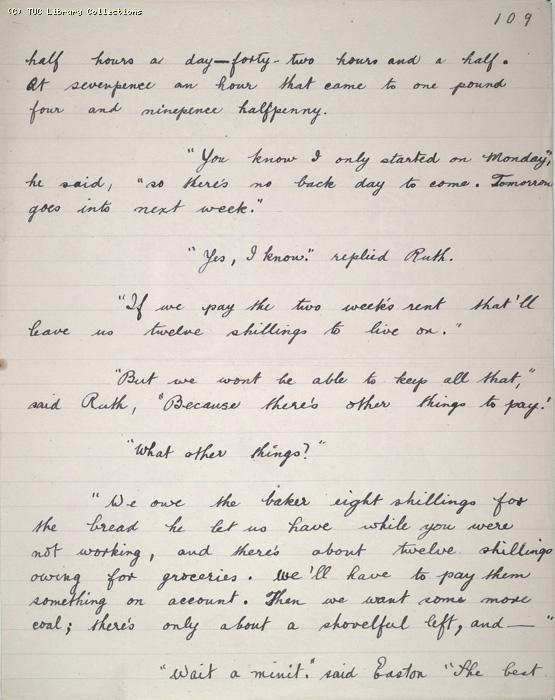 (C) TUC Library Collections
109
half hours a day—forty-two hours and a half.
At sevenpence an hour that came to one pound
four and ninepence halfpenny.
"You know I only started on Monday",
he said, "so there's no back day to come. Tomorrow
goes into next week."
"Yes, I know." replied Ruth.
"If we pay the two week's rent that'll
leave us twelve shillings to live on."
"But we wont be able to keep all that,"
said Ruth, "Because there's other things to pay."
"What other things?"
"We owe the baker eight shillings for
the bread he let us have while you were
not working, and there's about twelve shillings
owing for groceries. We'll have to pay them
something on account. Then we want some more
coal; there's only about a shovelful left, and — "
"Wait a minit." said Easton "The best